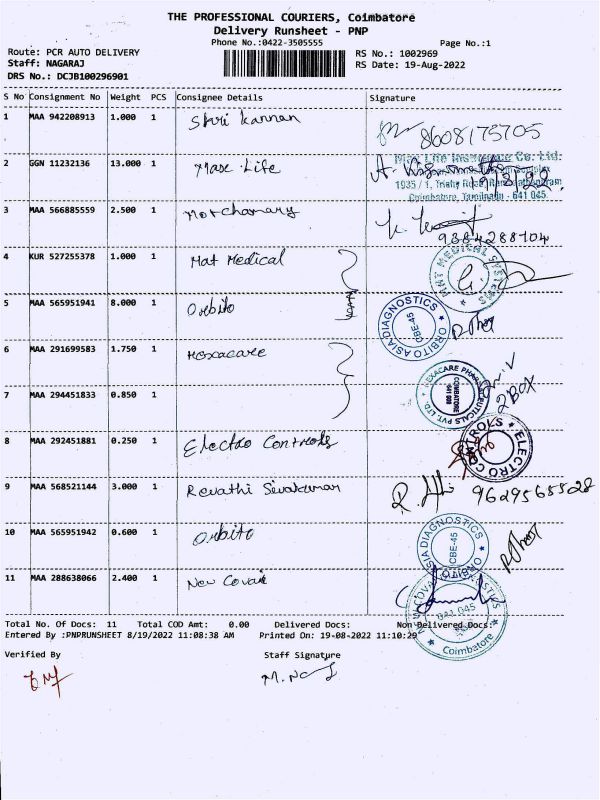 THE PROFESSIONAL COURIERS, Coimbatore
Delivery Runsheet - PNP
Phone No.:0422-3505555
Page No.:1
Route: PCR AUTO DELIVERY
RS No.: 1002969
Staff: NAGARAJ
RS Date: 19-Aug-2022
DRS No.: DCJB100296901
S No Consignment No Weight PCS Consignee Details Signature
1 MAA 942208913 1.000 1 Shri Kannan 8608175705
2 GGN 11232136 13.000 1 Max Life
Max Life Insurance Co. Ltd.
1935 / 1, Trichy Road, Ramanathapuram
Coimbatore, Tamilnadu - 641 045.
3 MAA 566885559 2.500 1 9384288704
4 KUR 527255378 1.000 1 Mat Medical
MEDICAL SYSTEMS
5 MAA 565951941 8.000 1 Orbito
ORBITO ASIA DIAGNOSTICS
CBE-45
6 MAA 291699583 1.750 1 Hexacare
HEXACARE PHARMACEUTICALS PVT. LTD.
COIMBATORE
2 BOX
7 MAA 294451833 0.850 1
8 MAA 292451881 0.250 1 Electro Controls
ELECTRO CONTROLS
9 MAA 568521144 3.000 1 Revathi Sivakumar 9629565528
10 MAA 565951942 0.600 1 Orbito
ORBITO ASIA DIAGNOSTICS
CBE-45
11 MAA 288638066 2.400 1 New Covai
641 045
Coimbatore
Total No. Of Docs: 11 Total COD Amt: 0.00 Delivered Docs: Non-Delivered Docs:
Entered By :PNPRUNSHEET 8/19/2022 11:08:38 AM Printed On: 19-08-2022 11:10:29
Verified By Staff Signature